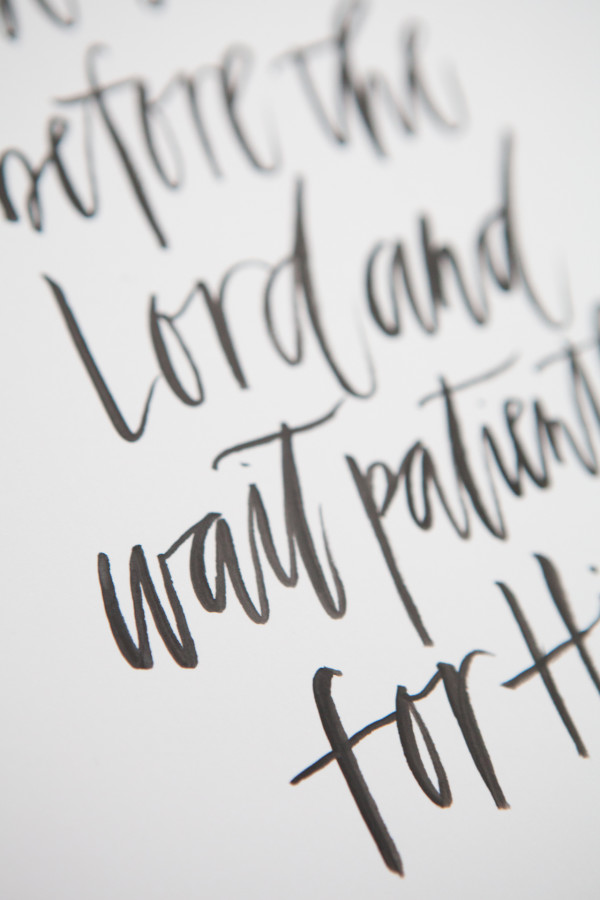 before the
Lord and
wait patient
for Hi